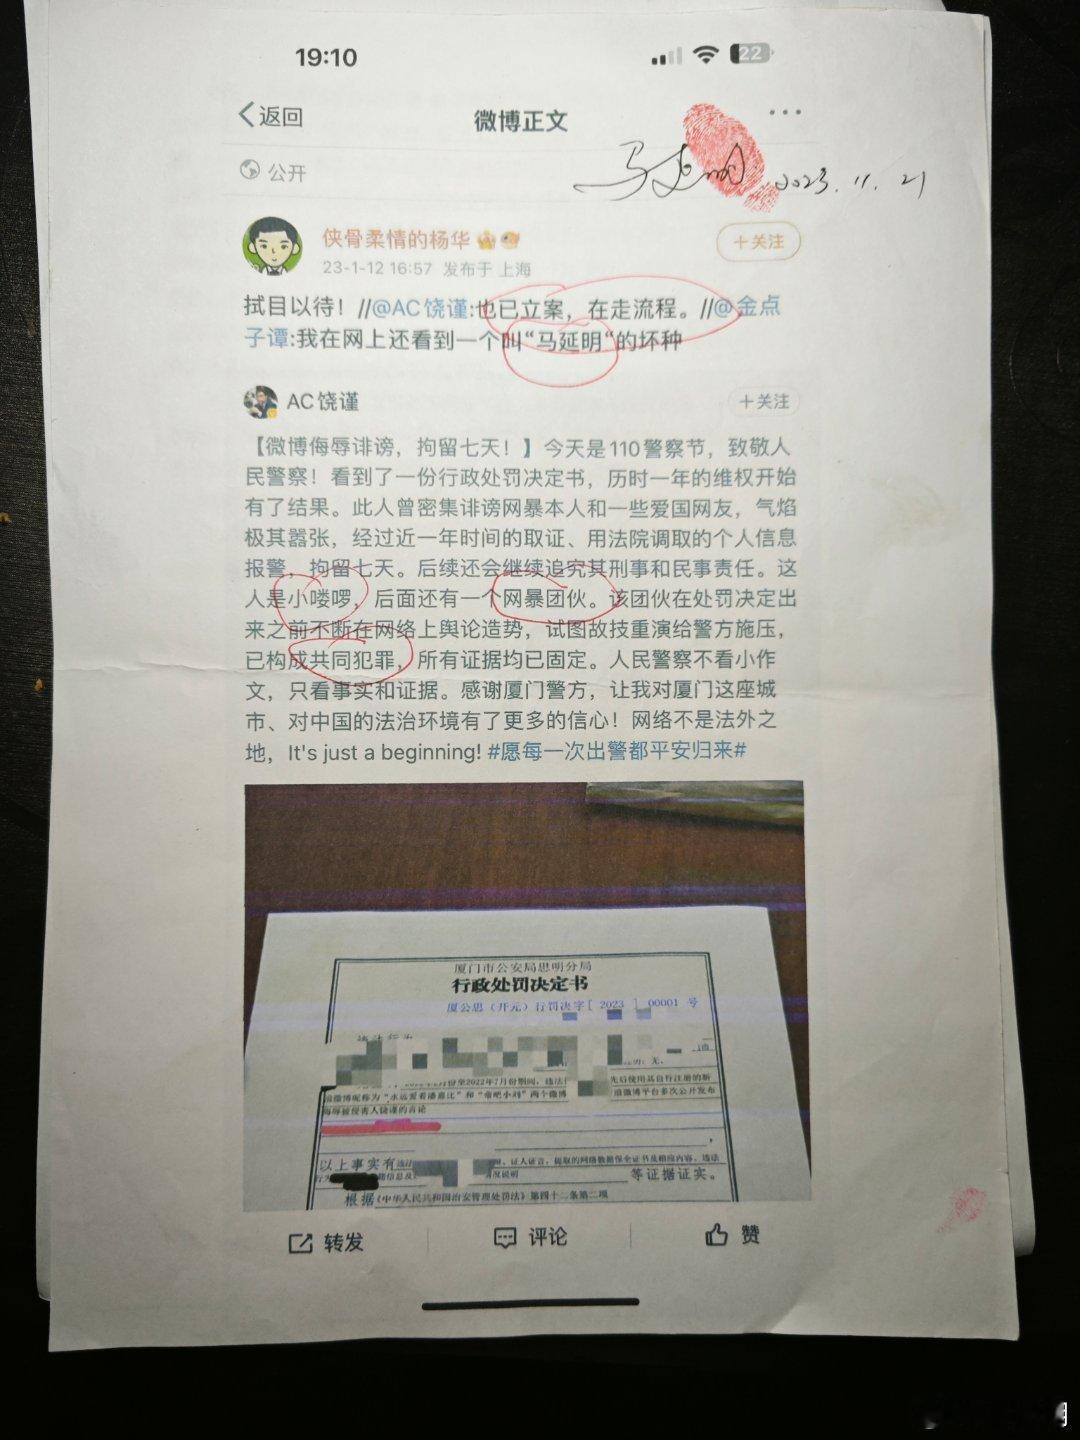 19:10
22
返回
微博正文
马延明 2023.11.21
公开
侠骨柔情的杨华
+关注
23-1-12 16:57 发布于 上海
拭目以待！//@AC饶谨:也已立案，在走流程。//@金点
子谭:我在网上还看到一个叫“马延明“的坏种
AC饶谨
+关注
【微博侮辱诽谤，拘留七天！】今天是110警察节，致敬人
民警察！看到了一份行政处罚决定书，历时一年的维权开始
有了结果。此人曾密集诽谤网暴本人和一些爱国网友，气焰
极其嚣张，经过近一年时间的取证、用法院调取的个人信息
报警，拘留七天。后续还会继续追究其刑事和民事责任。这
人是小喽啰，后面还有一个网暴团伙。该团伙在处罚决定出
来之前不断在网络上舆论造势，试图故技重演给警方施压，
已构成共同犯罪，所有证据均已固定。人民警察不看小作
文，只看事实和证据。感谢厦门警方，让我对厦门这座城
市、对中国的法治环境有了更多的信心！网络不是法外之
地，It's just a beginning! #愿每一次出警都平安归来#
厦门市公安局思明分局
行政处罚决定书
厦公思（开元）行罚决字［2023］00001 号
月份至2022年7月份期间，违法 先后使用其自行注册的新
浪微博昵称为“永远爱着潘嘉比”和“帝吧小刘”两个微博 浪微博平台多次公开发布
侮辱被侵害人饶谨的言论
以上事实有 证人证言、提取的网络数据保全证书及相应内容、违法
情况说明 等证据证实。
根据《中华人民共和国治安管理处罚法》第四十二条第二项
转发
评论
赞